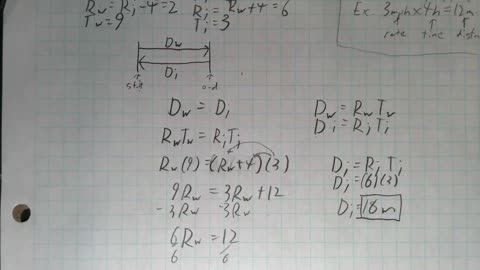 Rw = Rj - 4 = 2
Tw = 9
Rj = Rw + 4 = 6
Tj = 3
Ex. 3mph x 4h = 12m
rate time
Dw
Dj
start end
Dw = Dj
RwTw = RjTj
Rw(9) = (Rw+4)(3)
9Rw = 3Rw + 12
-3Rw -3Rw
6Rw = 12
6 6
Dw = RwTw
Dj = RjTj
Dj = Rj Tj
Dj = (6)(3)
Dj = 18m